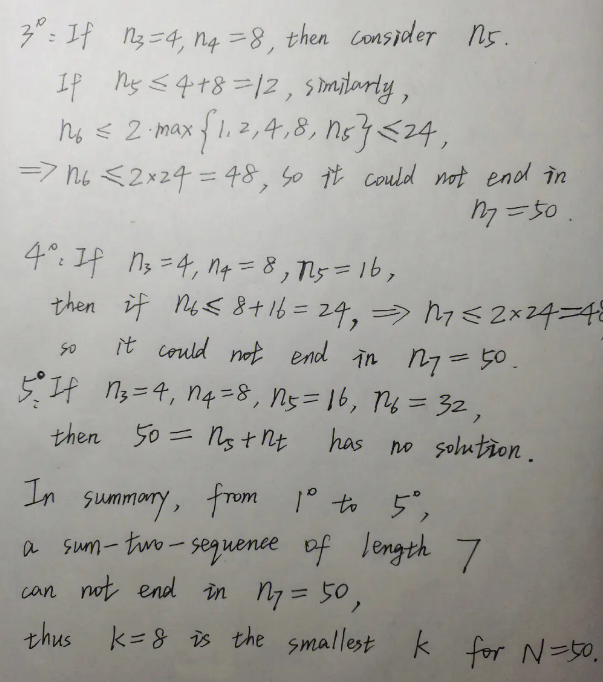 3°: If n₃=4, n₄=8, then consider n₅.
If n₅ ≤ 4+8=12, similarly,
n₆ ≤ 2·max{1,2,4,8,n₅} ≤ 24,
⇒ n₆ ≤ 2×24 = 48, so it could not end in
n₇ = 50.
4°: If n₃=4, n₄=8, n₅=16,
then if n₆ ≤ 8+16=24, ⇒ n₇ ≤ 2×24=48
so it could not end in n₇ = 50.
5°: If n₃=4, n₄=8, n₅=16, n₆=32,
then 50 = nₛ+nₜ has no solution.
In summary, from 1° to 5°,
a sum-two-sequence of length 7
can not end in n₇ = 50,
thus k=8 is the smallest k for N=50.